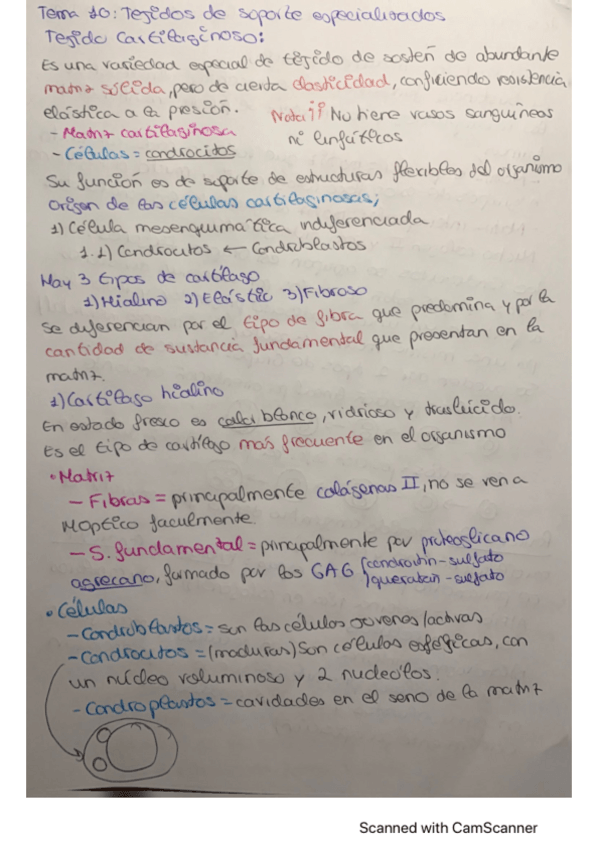 Tema 10: Tejidos de soporte especializados
Tejido Cartilaginoso:
Es una variedad especial de tejido de sostén de abundante
matriz sólida, pero de cierta elasticidad, confiriendo resistencia
elástica a la presión. Nota¡¡ No tiene vasos sanguíneos
- Matriz cartilaginosa ni linfáticos
- Células = condrocitos
Su función es de soporte de estructuras flexibles del organismo
Origen de las células cartilaginosas;
1) Célula mesenquimática indiferenciada
1.1) Condrocitos ← Condroblastos
Hay 3 tipos de cartílago
1) Hialino 2) Elástic 3) Fibroso
Se diferencian por el tipo de fibra que predomina y por la
cantidad de sustancia fundamental que presentan en la
matriz.
1) Cartílago hialino
En estado fresco es blanco, vidrioso y traslúcido.
Es el tipo de cartílago más frecuente en el organismo
• Matriz
- Fibras = principalmente colágenas II, no se ven a
M.óptico facilmente.
- S. fundamental = principalmente por proteoglicano
agrecano, formado por los GAG condroitin-sulfato
queratan-sulfato
• Células
- Condroblastos = son las células jovenes/activas
- Condrocitos = (maduras) Son células esféricas, con
un núcleo voluminoso y 2 nucleólos.
- Condroplastos = cavidades en el seno de la matriz
Scanned with CamScanner